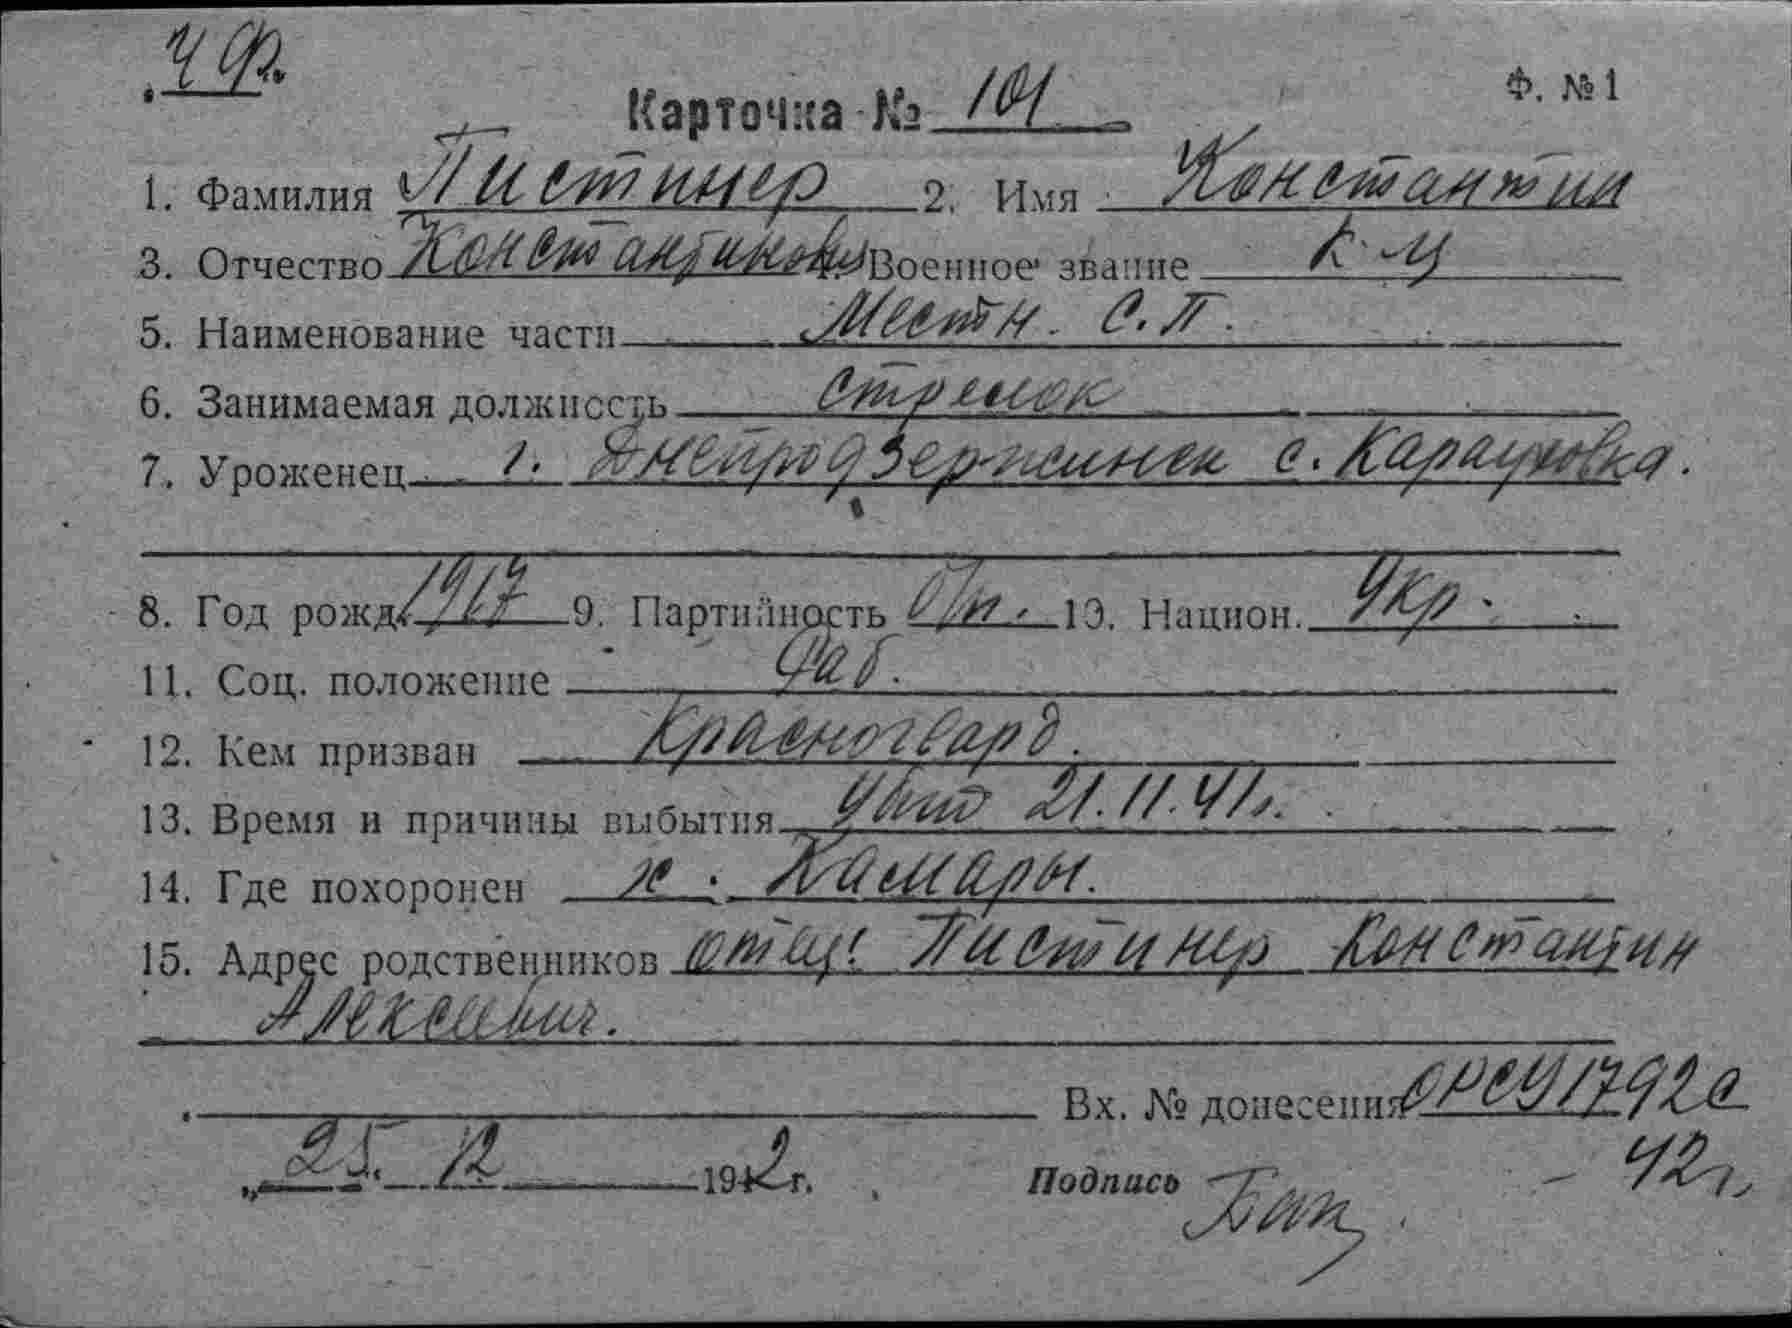 ЧФ.
Ф. №1
Карточка № 101
1. Фамилия Пистинер 2. Имя Константин
3. Отчество Константинович 4. Военное звание к-ц
5. Наименование части Местн. С.П.
6. Занимаемая должность стрелок
7. Уроженец г. Днепродзержинск с. Карауловка.
8. Год рожд. 1917 9. Партийность б/п. 10. Национ. Укр.
11. Соц. положение раб.
12. Кем призван Красногвард.
13. Время и причины выбытия убит 21.11.41г.
14. Где похоронен х. Камары.
15. Адрес родственников отец: Пистинер Константин
Алексеевич.
Вх. № донесения ОРСУ 1792с
„25. 12 1942 г. Подпись - 42г.